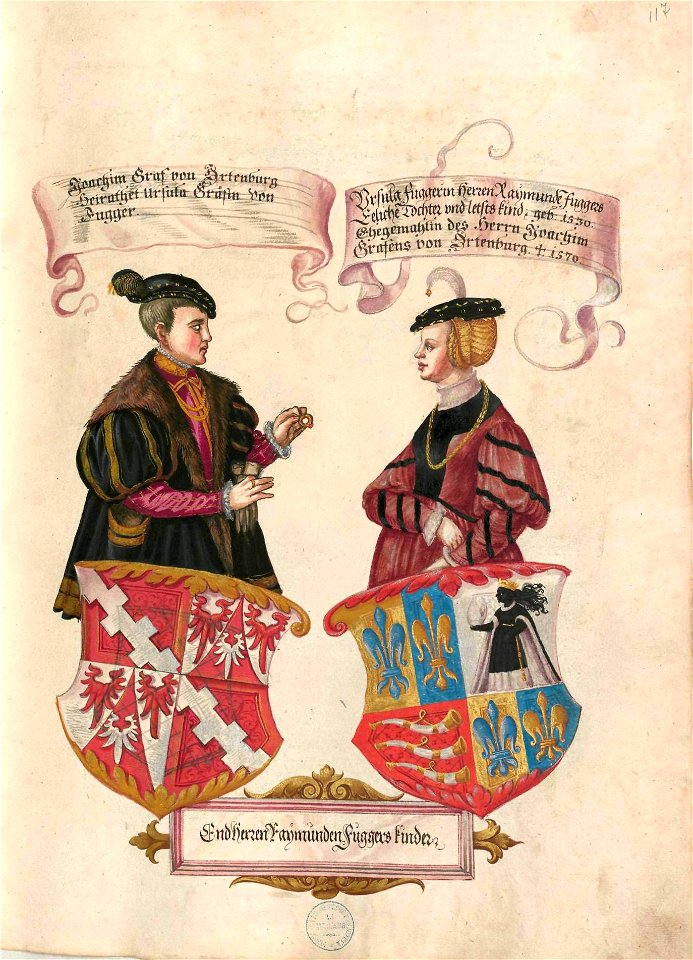 117
Joachim Graf von Ortenburg
Heirathet Ursula Gräfin von
Fugger.
Ursula Fuggerin Herren Raymunde Fuggers
Eeliche Tochter vnd letsts kind, geb. 1530.
Ehegemahlin des Herrn Joachim
Grafens von Ortenburg. † 1570.
End Herren Raÿmunden Fuggers kinder